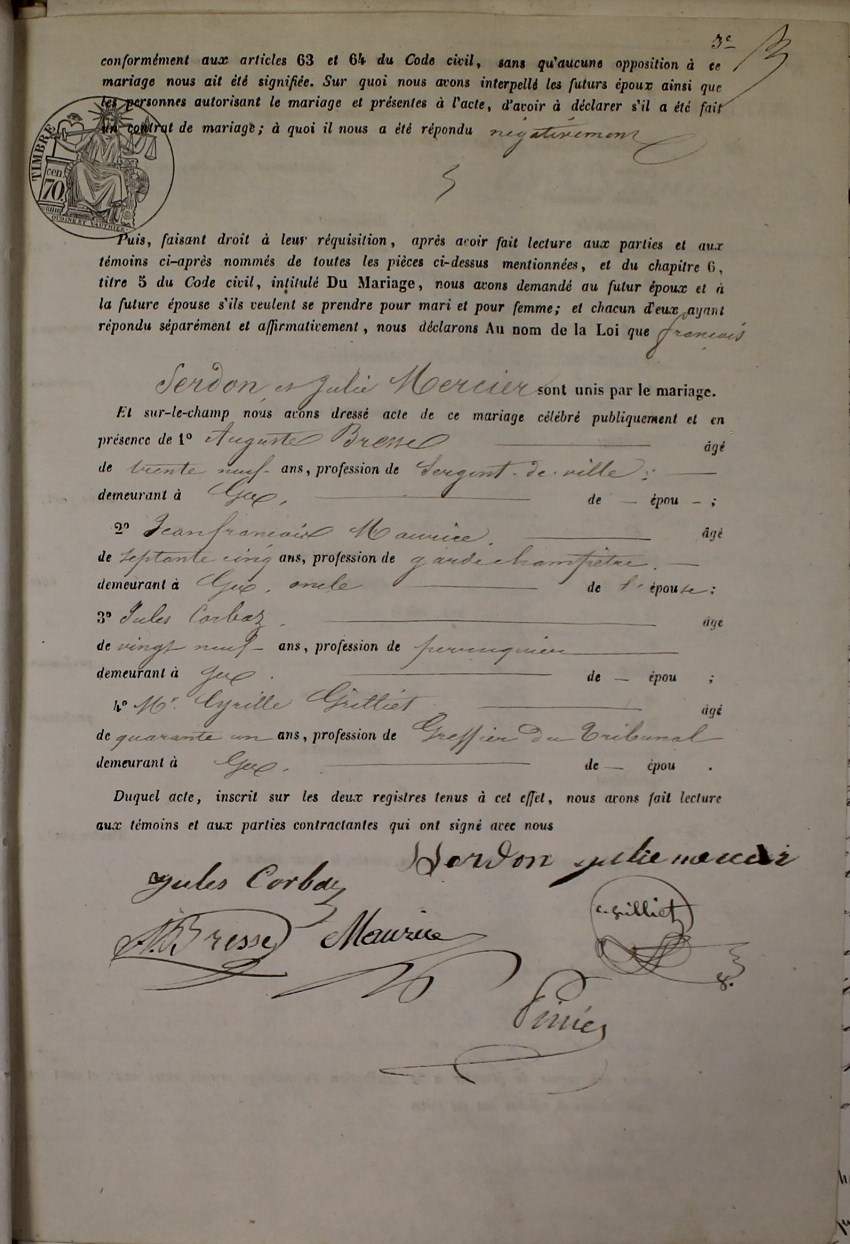 3e
conformément aux articles 63 et 64 du Code civil, sans qu'aucune opposition à ce
mariage nous ait été signifiée. Sur quoi nous avons interpellé les futurs époux ainsi que
les personnes autorisant le mariage et présentes à l'acte, d'avoir à déclarer s'il a été fait
un contrat de mariage; à quoi il nous a été répondu négativement
TIMBRE
cen
70
Puis, faisant droit à leur réquisition, après avoir fait lecture aux parties et aux
témoins ci-après nommés de toutes les pièces ci-dessus mentionnées, et du chapitre 6,
titre 5 du Code civil, intitulé Du Mariage, nous avons demandé au futur époux et à
la future épouse s'ils veulent se prendre pour mari et pour femme; et chacun d'eux ayant
répondu séparément et affirmativement, nous déclarons Au nom de la Loi que françois
Serdon et Julie Mercier sont unis par le mariage.
Et sur-le-champ nous avons dressé acte de ce mariage célébré publiquement et en
présence de 1o Auguste Bresse âgé
de trente neuf ans, profession de Sergent-de-ville;
demeurant à Gex, de — épou - ;
2o Jeanfrançois Maurice, âgé
de septante cinq ans, profession de garde champêtre.
demeurant à Gex, oncle de l'épouse;
3o Jules Corbaz, âgé
de vingt neuf ans, profession de perruquier
demeurant à Gex. de — épou ;
4o Mr. Cyrille Grilliet âgé
de quarante un ans, profession de Greffier du Tribunal
demeurant à Gex. de — épou .
Duquel acte, inscrit sur les deux registres tenus à cet effet, nous avons fait lecture
aux témoins et aux parties contractantes qui ont signé avec nous
Serdon julie mercier
Jules Corbaz
c. grilliet
A. Bresse Maurice